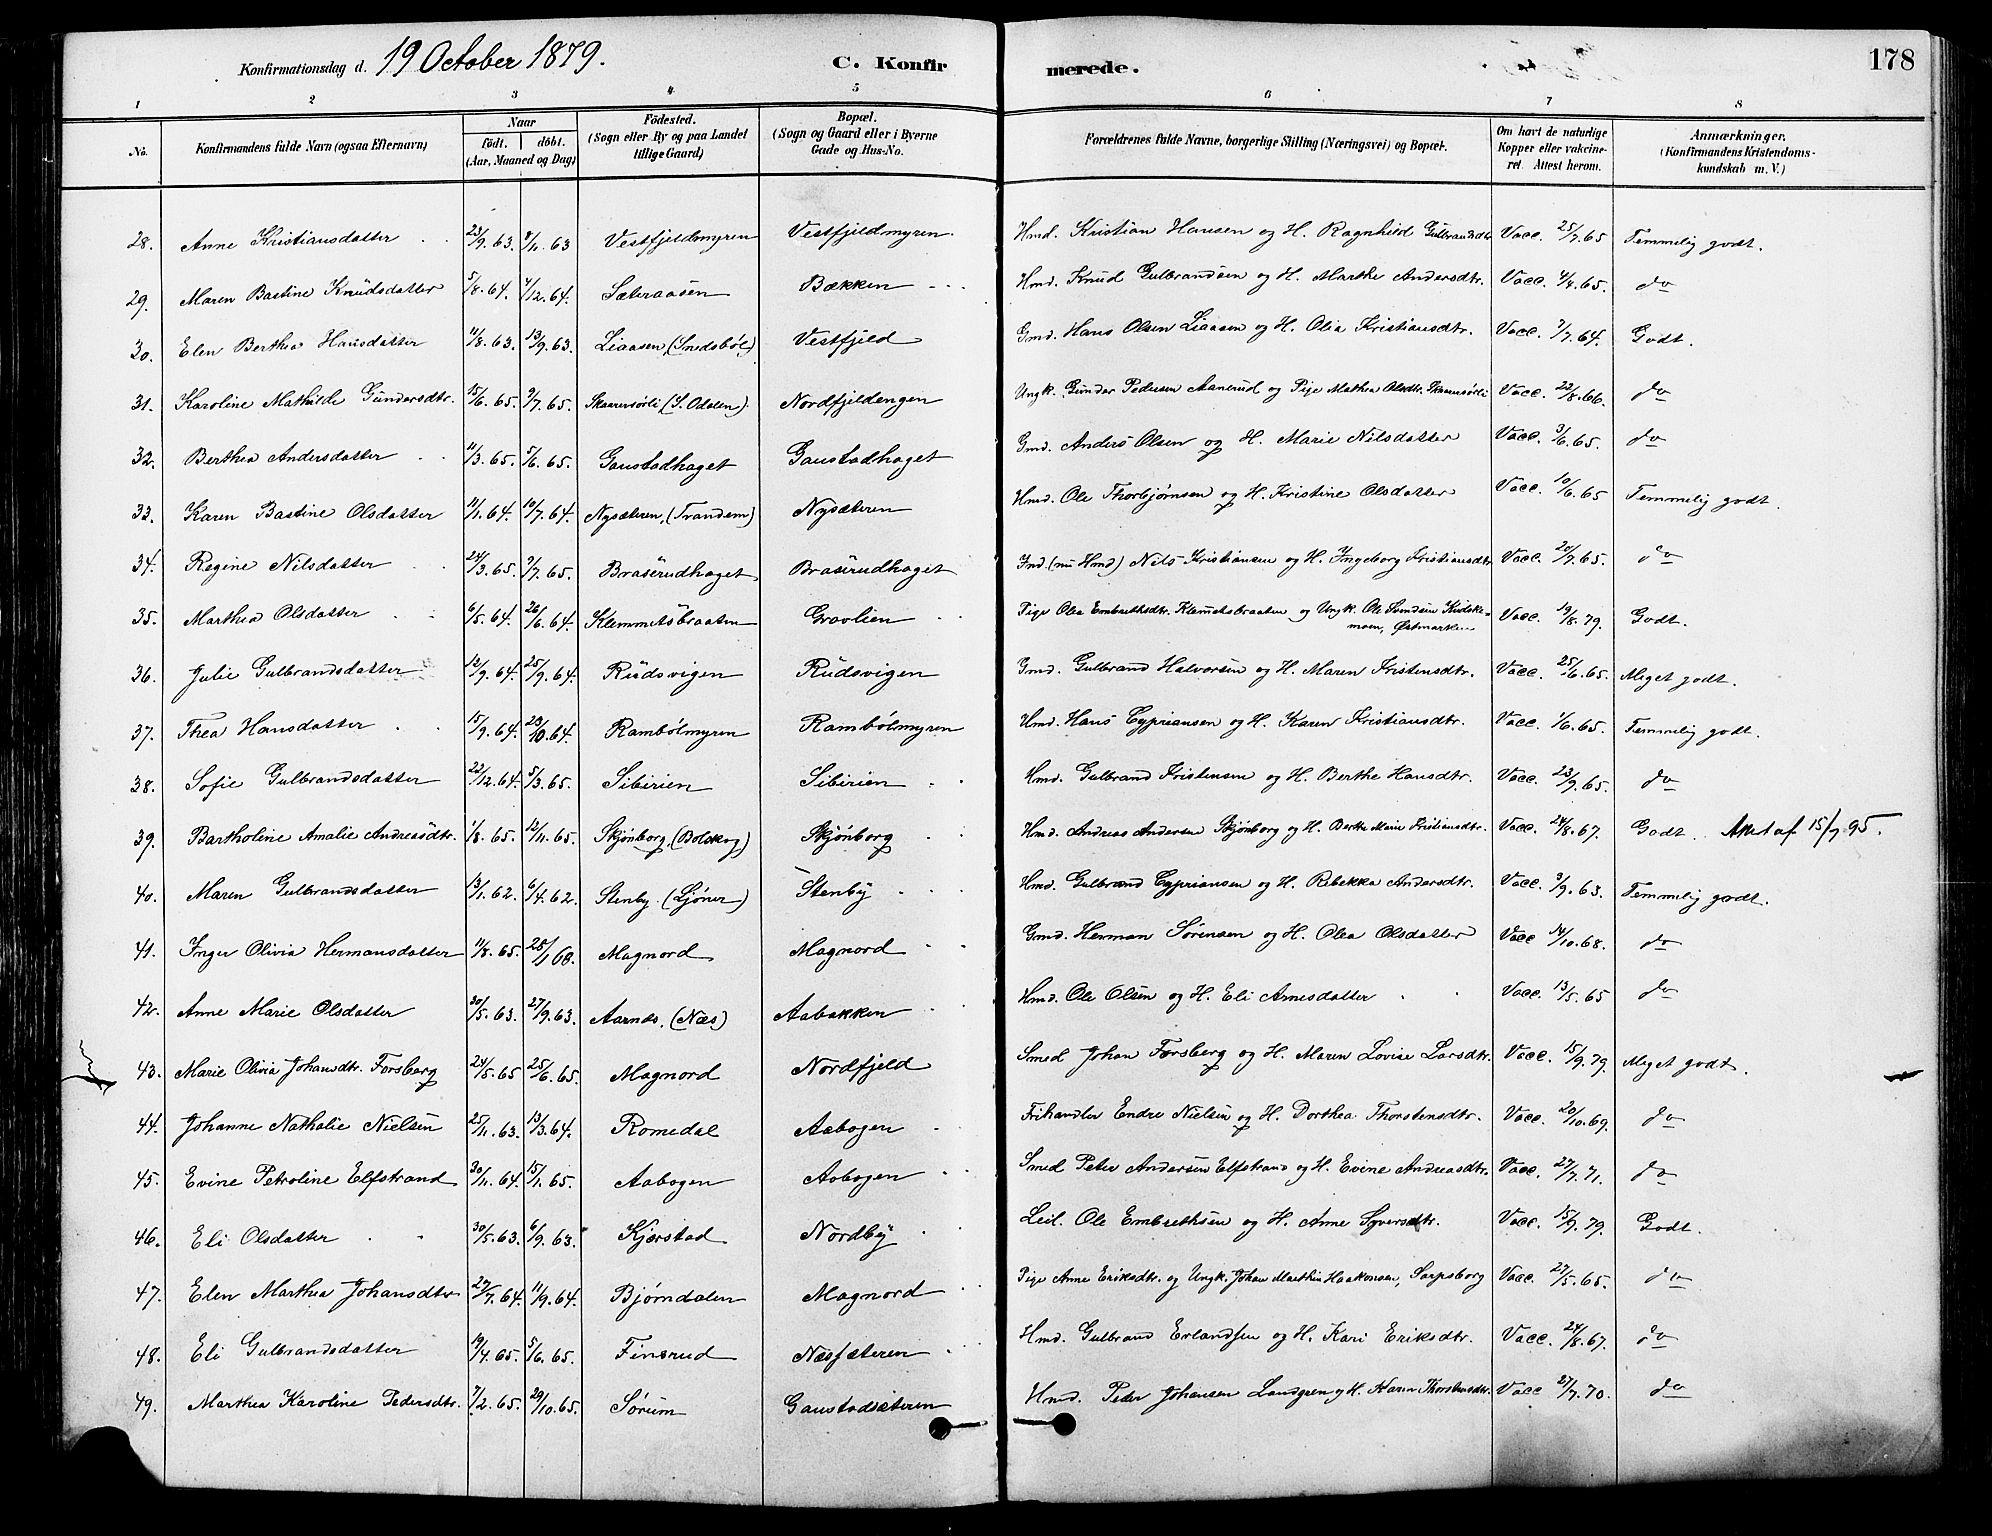 Konfirmationsdag d. 19 October 1879. C. Konfirmerede. 178
1 2 3 4 5 6 7 8
No. Konfirmandens fulde Navn (ogsaa Efternavn) Naar födt. döbt. (Aar, Maaned og Dag) Födested. (Sogn eller By og paa Landet tillige Gaard) Bopæl. (Sogn og Gaard eller i Byerne Gade og Hus-No. Forældrenes fulde Navne, borgerlige Stilling (Næringsvei) og Bopæl. Om havt de naturlige Kopper eller vakcineret. Attest herom. Anmærkninger. (Konfirmandens Kristendomskundskab m. V.)
28. Anne Kristiansdatter 23/9.63. 8/11.63 Vestfjeldmyren Vestfjeldmyren. Hmd. Kristian Hansen og H. Ragnhild Gulbrandsdtr Vacc. 25/7.65 Temmelig godt.
29. Maren Bastine Knudsdatter 5/8.64. 4/12.64. Sæteraasen Bækken Hmd. Knud Gulbrandsen og H. Marthe Andersdtr. Vacc. 4/7.65. do
30. Elen Berthea Hansdatter 11/8.63. 13/9.63. Liaasen (Sndsböl) Vestfjeld Gmd. Hans Olsen Liaasen og H. Olia Kristiansdtr. Vacc. 7/7.64. Godt.
31. Karoline Mathilde Gundersdtr. 15/6.65. 9/7.65. Skaarersörli (S. Odalen). Nordfjeldengen Ungk. Gunder Pedersen Aanerud og Pige Mathea Olsdtr. Skaarersörli Vacc. 22/8.66. do
32. Berthea Andersdatter 11/3.65. 5/6.65. Gaustadhaget Gaustadhaget Gmd. Anders Olsen og H. Marie Nilsdatter Vacc. 3/6.65. do
33. Karen Bastine Olsdatter 11/1.64. 10/7.64. Nysæteren, (Trandem) Nysæteren Hmd. Ole Thorbjørnsen og H. Kristine Olsdatter Vacc. 10/6.65 Temmelig godt.
34. Regine Nilsdatter 24/3.65. 9/7.65. Braserudhaget Braserudhaget Ind. (nu Hmd) Nils Kristiansen og H. Ingeborg Kristiansdtr Vacc. 20/7.65. do
35. Marthea Olsdatter 6/5.64. 26/6.64. Klemmetsbraaten Gravlien Pige Olea Embrethsdtr. Klemetsbraaten og Ungk. Ole Semdsen Kirkemoen, Østmarken Vacc. 19/8.79. Godt.
36. Julie Gulbrandsdatter 12/9.64. 25/9.64. Rudsvigen Rudsvigen Gmd. Gulbrand Halvorsen og H. Maren Kristensdtr. Vacc. 25/6.65. Meget godt.
37. Thea Hansdatter 15/9.64. 23/10.64. Rambölmyren Rambölmyren Hmd. Hans Cypriansen og H. Karen Kristiansdtr. Vacc. 1/6.65. Temmelig godt.
38. Sofie Gulbrandsdatter 22/12.64. 5/3.65. Sibirien Sibirien Hmd. Gulbrand Kristensen og H. Berthe Hansdtr. Vacc. 23/9.65. do
39. Bartholine Amalie Andreasdtr. 1/8.65. 12/11.65. Skjönborg, (Bolskog) Skjönborg Hmd. Andreas Andersen Skjönborg og H. Berthe Marie Kristiansdtr. Vacc. 24/8.67. Godt. Attest af 15/7 95.
40. Maren Gulbrandsdatter 13/1.62. 6/4.62. Stenby. (Ljöner) Stenby Hmd. Gulbrand Cypriansen og H. Rebekka Andersdtr. Vacc. 3/9.63. Temmelig godt.
41. Inger Olivia Hermansdatter 11/8.65. 28/1 68. Magnord Magnord Gmd. Herman Sørensen og H. Olea Olsdatter Vacc 14/10.68. do
42. Anne Marie Olsdatter 30/5.63. 27/9.63. Aarnæs, (Næs) Aabakken Hmd. Ole Olsen og H. Eli Arnesdatter Vacc. 13/5.65 do
43. Marie Olivia Johansdtr. Forsberg 24/5.65 25/6.65. Magnord Nordfjeld Smed Johan Forsberg og H. Maren Lovise Larsdtr. Vacc. 15/9.79. Meget godt.
44. Johanne Nathalie Nielsen 25/11.63. 13/3.64. Romedal Aabogen Frihandler Endre Nielsen og H. Dorthea Thorstensdtr. Vacc. 20/10.69. do
45. Evine Petroline Elfstrand 30/11.64. 15/1.65. Aabogen Aabogen Smed Peter Andersen Elfstrand og H. Evine Andreasdtr. Vacc. 27/7.71. do
46. Eli Olsdatter 30/5.63. 6/9.63. Kjerstad Nordby Leil. Ole Embrethsen og H. Anne Syversdtr. Vacc. 15/9.79. Godt.
47. Elen Marthea Johansdtr 27/7.64. 11/9.64. Bjørndalen Magnord Pige Anne Eriksdtr. og Ungk. Johan Marthin Haakonsen, Sarpsborg Vacc. 27/5.65. do
48. Eli Gulbrandsdatter 19/4.65. 5/6.65. Finsrud Næsfæteren Hmd. Gulbrand Erlandsen og H. Kari Eriksdtr. Vacc. 24/8.67. do
49. Marthea Karoline Pedersdtr. 7/2.65. 29/10.65. Sørum Gaustadsæteren Hmd. Peter Johansen Landgren og H. Karen Thorstensdtr. Vacc 27/7.70. do